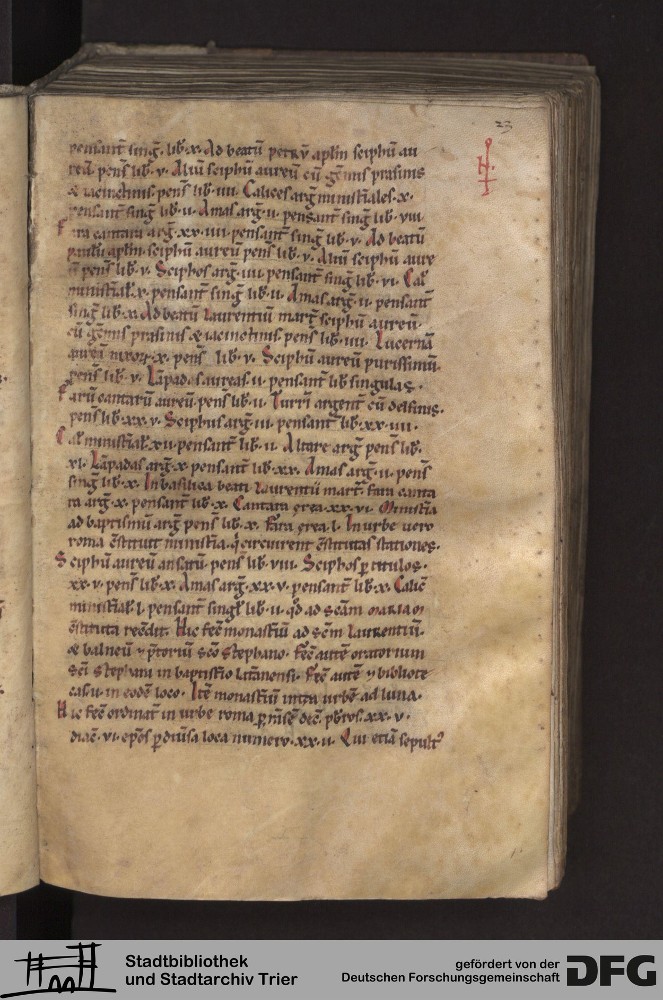 23
pensant̄ sinḡ. lib̄. x. Ad beatū petrū apłm sciphū au
reū. pens̄ lib̄. v. Aliū sciphū aureū cū gēmis prasinis
& iacinctinis. pens̄ lib̄. iiii. Calices arḡ ministīales. x.
pensant̄ sinḡ lib̄. ii. Amas arḡ. ii. pensant̄ sinḡ lib̄. viii.
Fara cantara arḡ. xx. iiii. pensant̄ sinḡ lib̄. v. Ad beatū
paulū apłm. sciphū aureū pens̄ lib̄. v. Aliū sciphū aure
ū pens̄ lib̄. v. Sciphos arḡ. iii. pensant̄ sinḡ lib̄. vi. Cal̄
ministīal. x. pensant̄ sinḡ lib̄. ii. Amas arḡ. ii. pensant̄
sinḡ lib̄. x. Ad beatū Laurentiū martr̄ sciphū aureū.
cū gēmis prasinis & iacinctinis. pens̄ lib̄. iiii. Lucernā
aureā nixorū. x. pens̄ lib̄. v. Sciphū aureū purissimū.
pens̄ lib̄. v. Lāpadas aureas. ii. pensant̄ lib̄ singulas.
Farū cantarū aureū. pens̄ lib̄. ii. Turrī argent̄ cū delfinis.
pens̄ lib̄. xx. v. Sciphus arḡ. iii. pensant̄ lib̄. xx. iiii.
Cal̄ ministīal. xii. pensant̄ lib̄. ii. Altare arḡ pens̄ lib̄.
xl. Lāpadas arḡ. x. pensant̄ lib̄. xx. Amas arḡ. ii. pens̄
sinḡ lib̄. x. In basilica beati Laurentii mart̄. fara canta
ra arḡ. x. pensant̄ lib̄. x. Cantara erea. xx. vi. Ministīa
ad baptismū arḡ pens̄ lib̄. x. Fara erea. l. In urbe uero
roma c̄stituit ministīa. q̄ circuirent c̄stitutas stationes.
Sciphū aureū ansatū. pens̄ lib̄. viii. Sciphos p̄ titulos.
xx. v. pens̄ lib̄. x. Amas arḡ. xx. v. pensant̄ lib̄. x. Calic̄
ministīal. l. pensant̄ singł lib̄. ii. q̄d ad sc̄am maria m
c̄stituta rec̄dit. Hic fec̄ monastīū ad sc̄m Laurentiū.
& balneū & p̄toriū sc̄o stephano. Fec̄ autē oratorium
sc̄i stephani in baptistīo latīanensi. Fec̄ autē & bibliotc
cas. ii. in eodē loco. Itē monastīū intra urbē ad luna.
Hic fec̄ ordinat̄ in urbe roma p̄ m̄se dēc̄. pb̄ros. xx. v.
diac̄. vi. ep̄os p̄ diūsa loca numero. xx. ii. Qui etiā sepult᷒
Stadtbibliothek
und Stadtarchiv Trier
gefördert von der
Deutschen Forschungsgemeinschaft
DFG